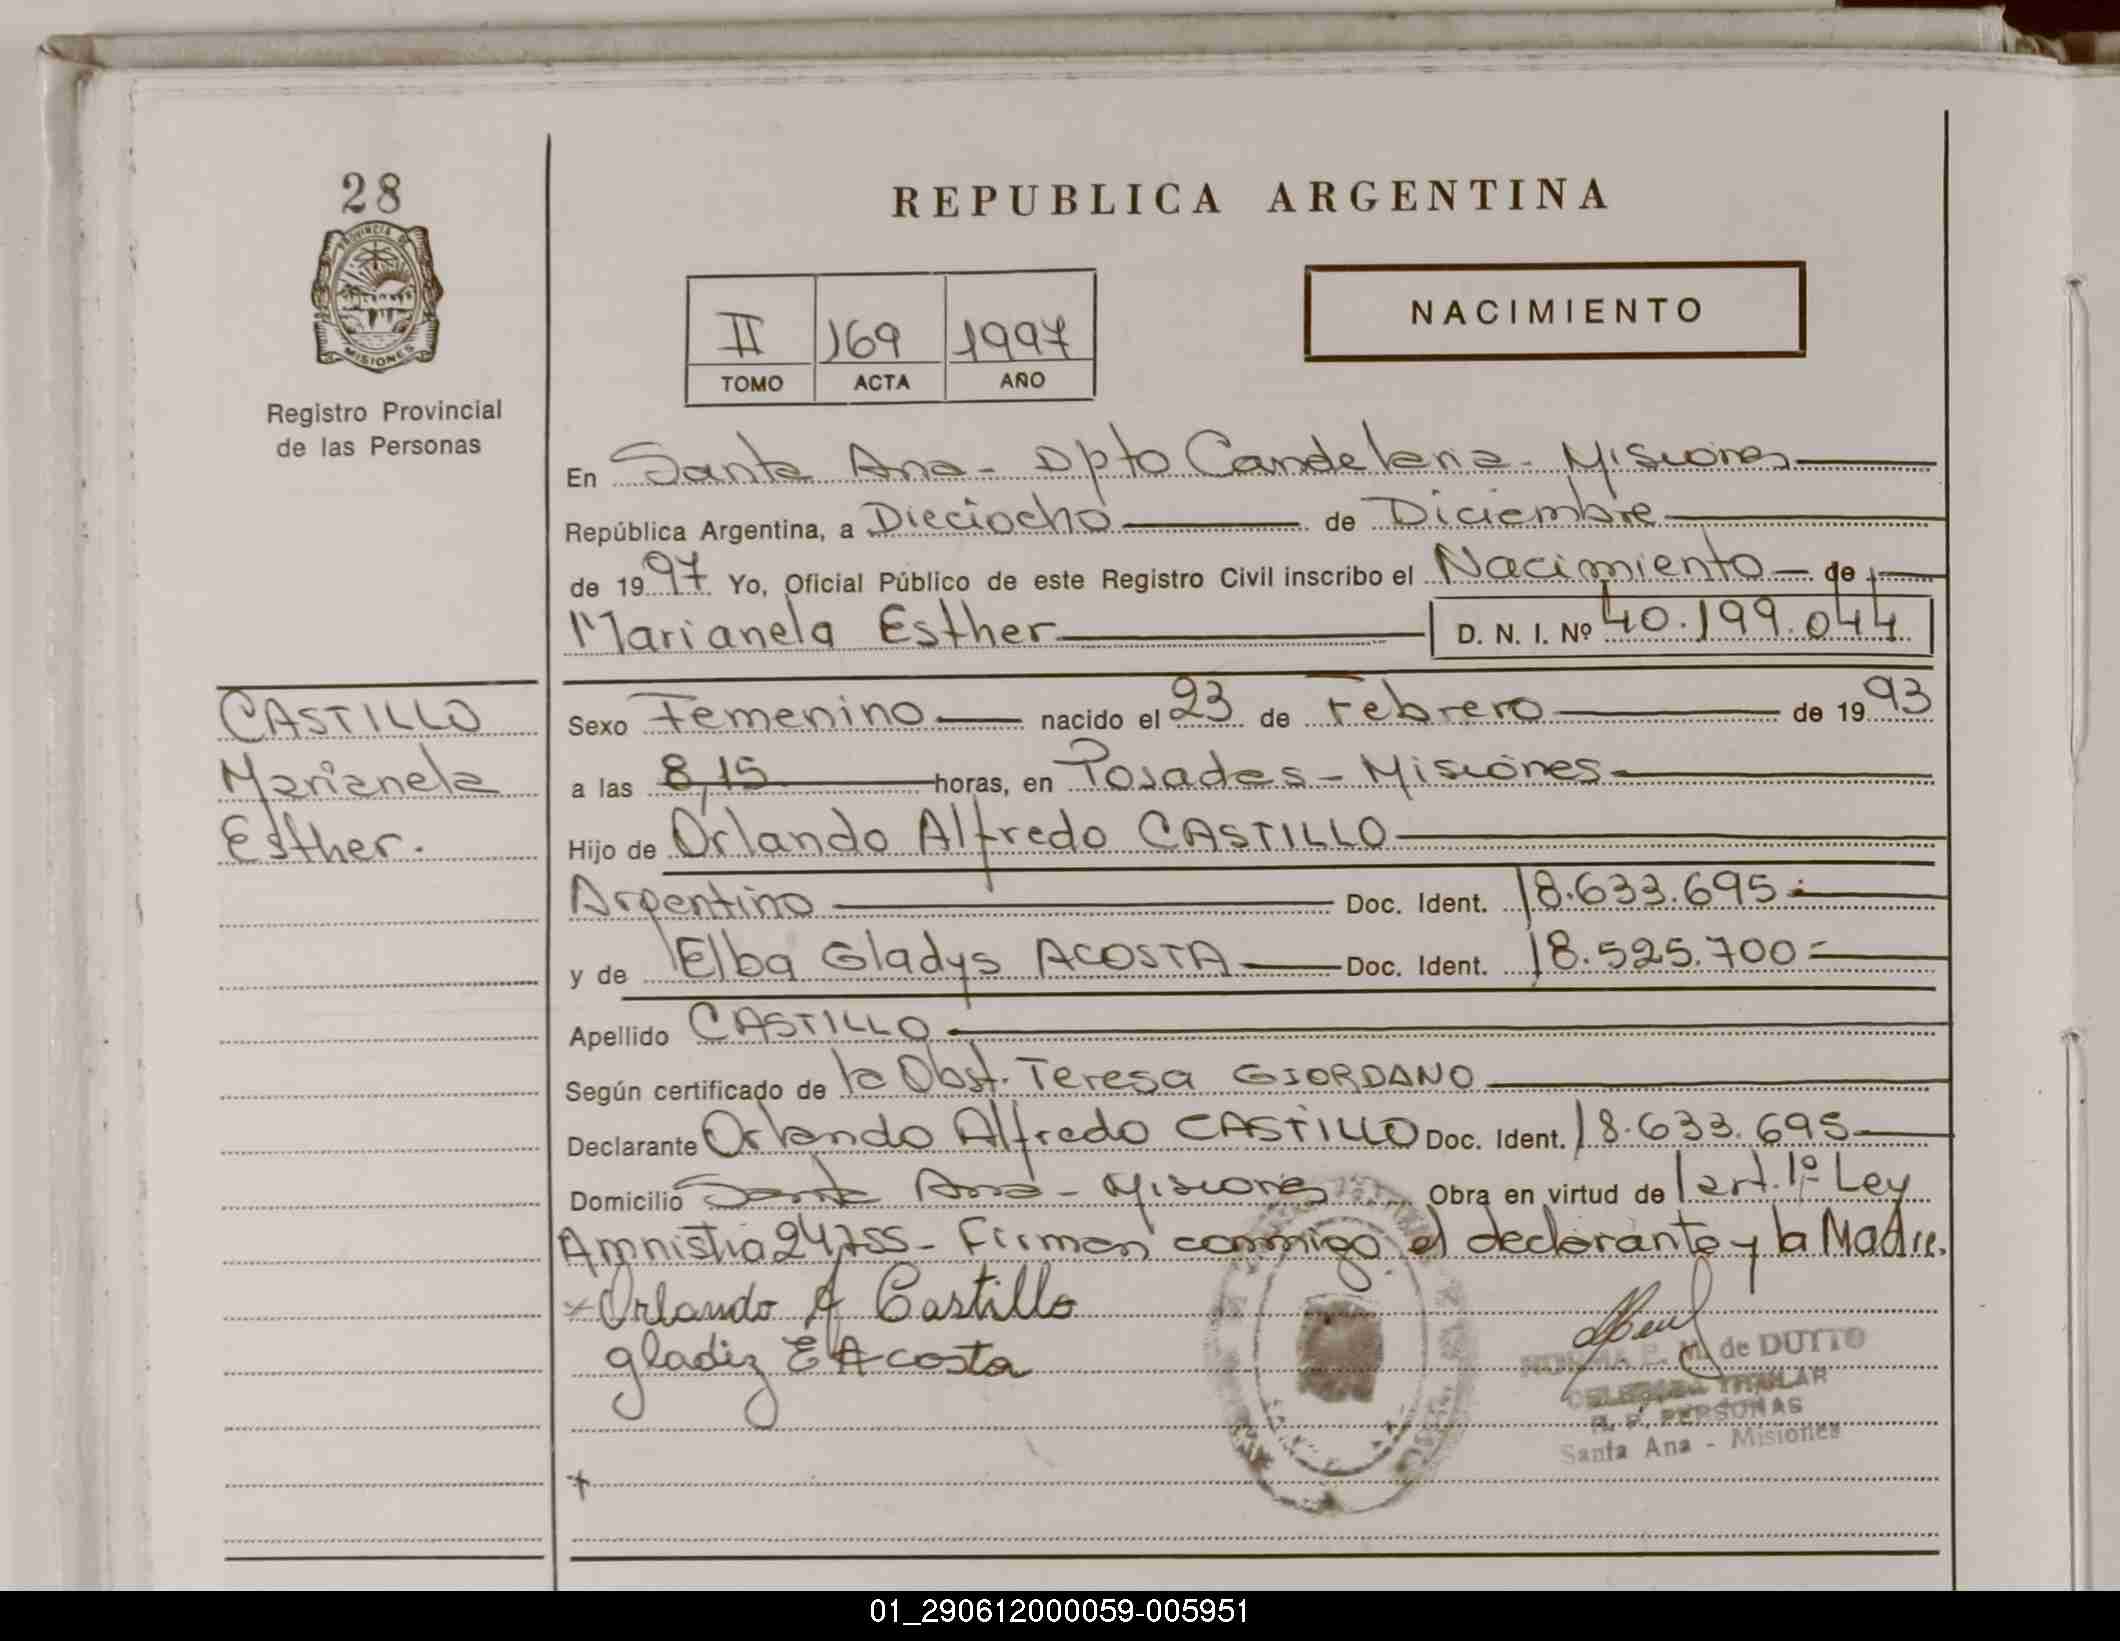 28
PROVINCIA DE
MISIONES
Registro Provincial
de las Personas
REPUBLICA ARGENTINA
II 169 1997
TOMO ACTA AÑO
NACIMIENTO
En Santa Ana - Dpto Candelaria - Misiones
República Argentina, a Dieciocho de Diciembre
de 1997 Yo, Oficial Público de este Registro Civil inscribo el Nacimiento de
Marianela Esther D. N. I. Nº 40.199.044
CASTILLO
Marianela
Esther.
Sexo Femenino nacido el 23 de Febrero de 1993
a las 8,15 horas, en Posadas - Misiones
Hijo de Orlando Alfredo CASTILLO
Argentino Doc. Ident. 18.633.695
y de Elba Gladys ACOSTA Doc. Ident. 18.525.700
Apellido CASTILLO
Según certificado de la Obst. Teresa GIORDANO
Declarante Orlando Alfredo CASTILLO Doc. Ident. 18.633.695
Domicilio Santa Ana - Misiones Obra en virtud de l art. 1º Ley
Amnistia 24755 - Firman conmigo el declarante y la Madre.
Orlando A Castillo
gladiz E Acosta
de DUTTO
TITULAR
R. P. PERSONAS
Santa Ana - Misiones
01_290612000059-005951